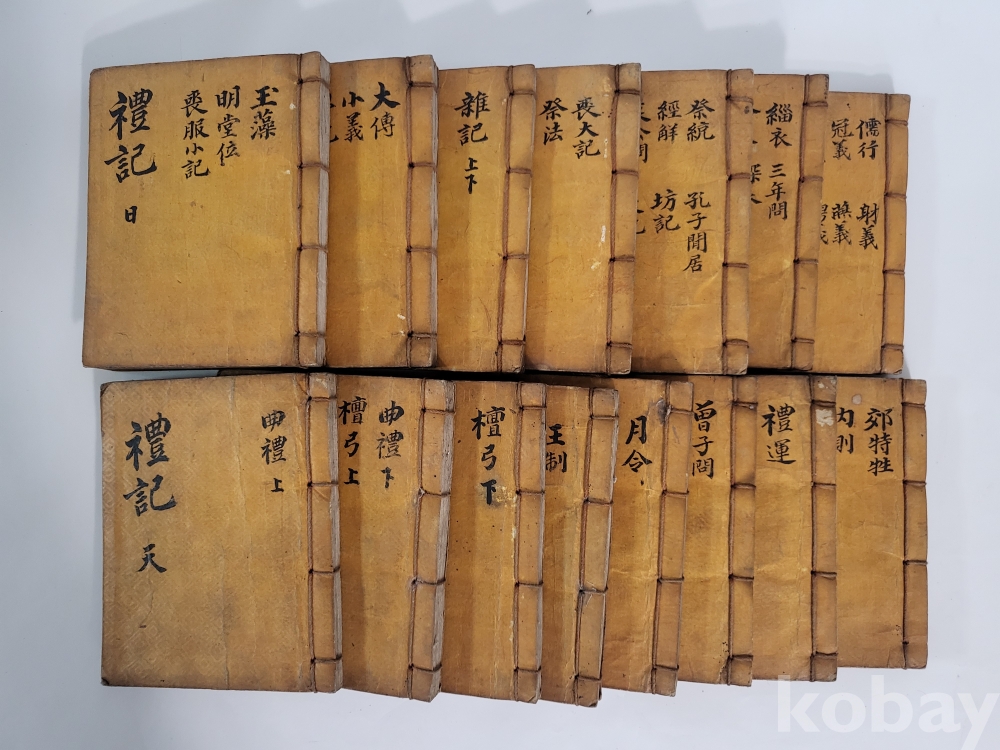 禮記
日
玉藻
明堂位
喪服小記
大傳
小義
雜記 上下
喪大記
祭法
祭統 孔子閒居
經解 坊記
緇衣 三年問
儒行 射義
冠義
禮記
天
曲禮 上
曲禮 下
檀弓 上
檀弓 下
王制
月令
曾子問
禮運
郊特牲
內則
kobay